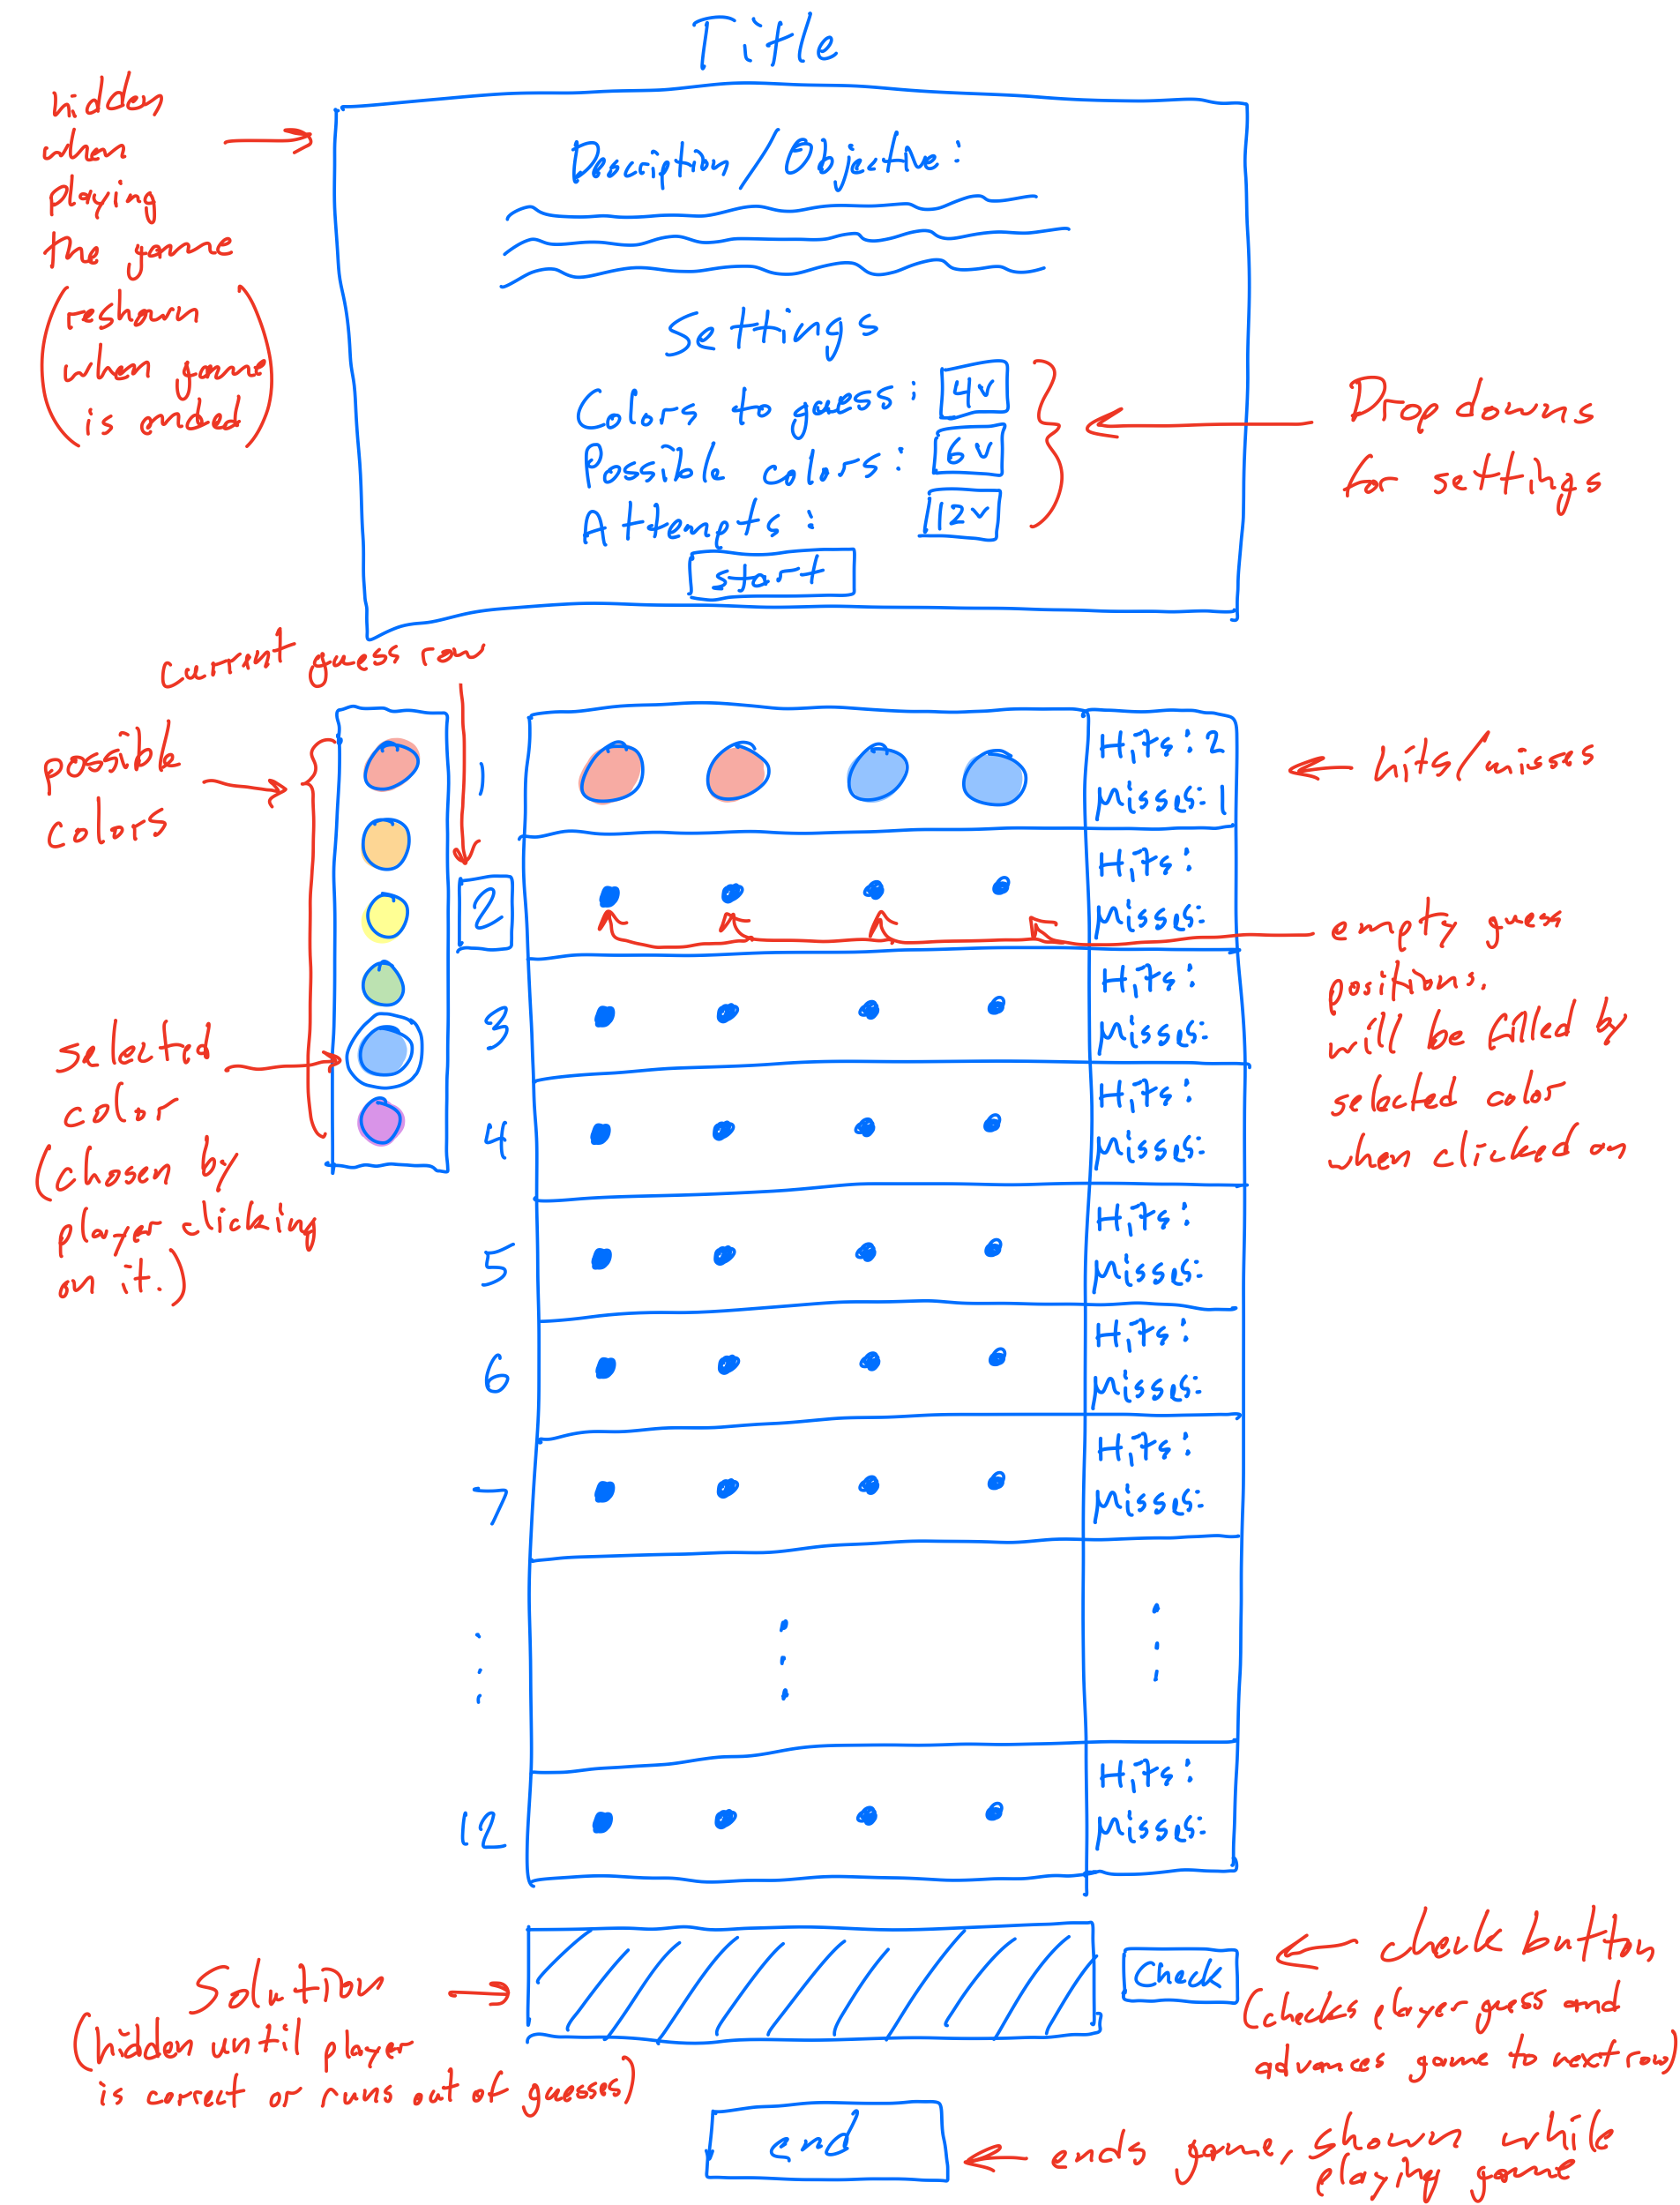 Title
hidden
when
playing
the game
(reshown
when game
is ended)
Description/Objective:
Settings
Colors to guess: 4v
Possible colors: 6v
Attempts: 12v
start
Drop downs
for settings
current guess row
possible
colors
selected
color
(chosen by
player clicking
on it.)
1
Hits: 2
Misses: 1
hits/misses
2
Hits:
Misses:
empty guess
positions.
will be filled by
selected color
when clicked on
3
Hits:
Misses:
4
Hits:
Misses:
5
Hits:
Misses:
6
Hits:
Misses:
7
Hits:
Misses:
12
Hits:
Misses:
Solution
(hidden until player
is correct or runs out of guesses)
Check
check button
(checks player guess and
advances game to next row)
end
ends game, shown while
playing game